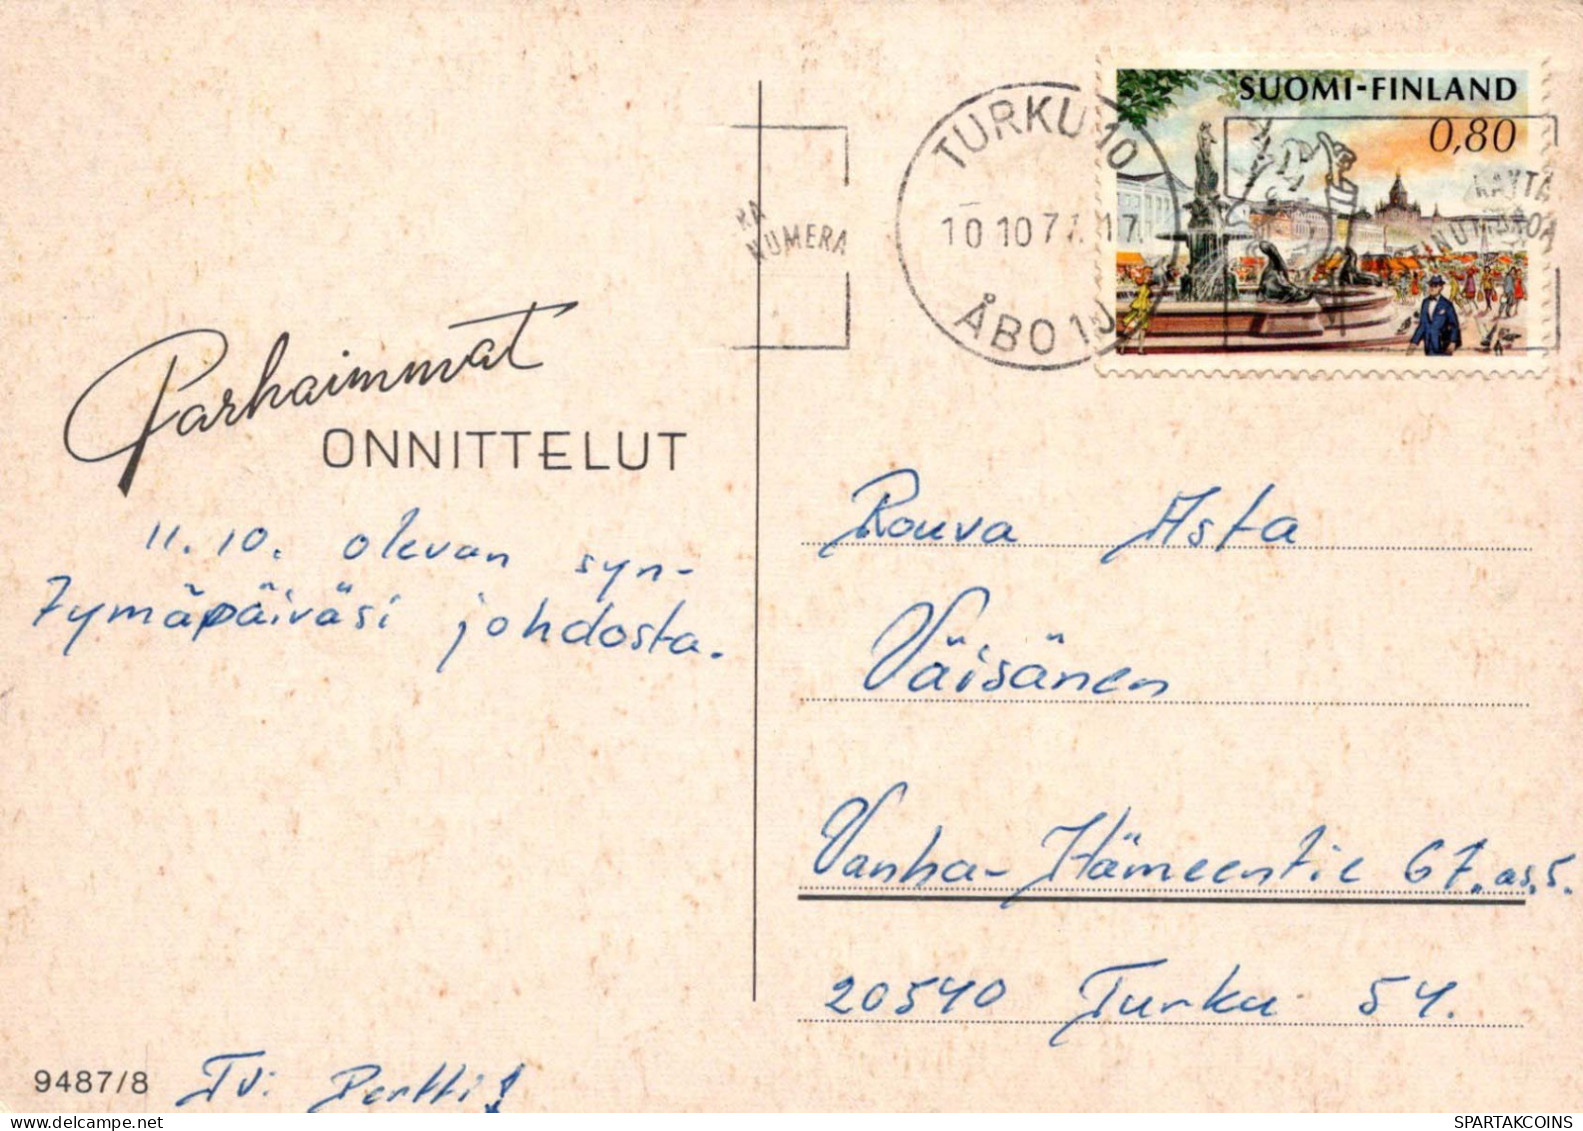 SUOMI-FINLAND
0,80
TURKU 10
10 10 77. 17
ÅBO 10
KA
NUMERA
KÄYTÄ
Parhaimmat
ONNITTELUT
11.10. olevan syn-
tymäpäiväsi johdosta.
Rouva Asta
Väisänen
Vanha-Hämeentie 67.as.5.
20540 Turku 54.
9487/8
Tv: Pertti!
SPARTAKCOINS